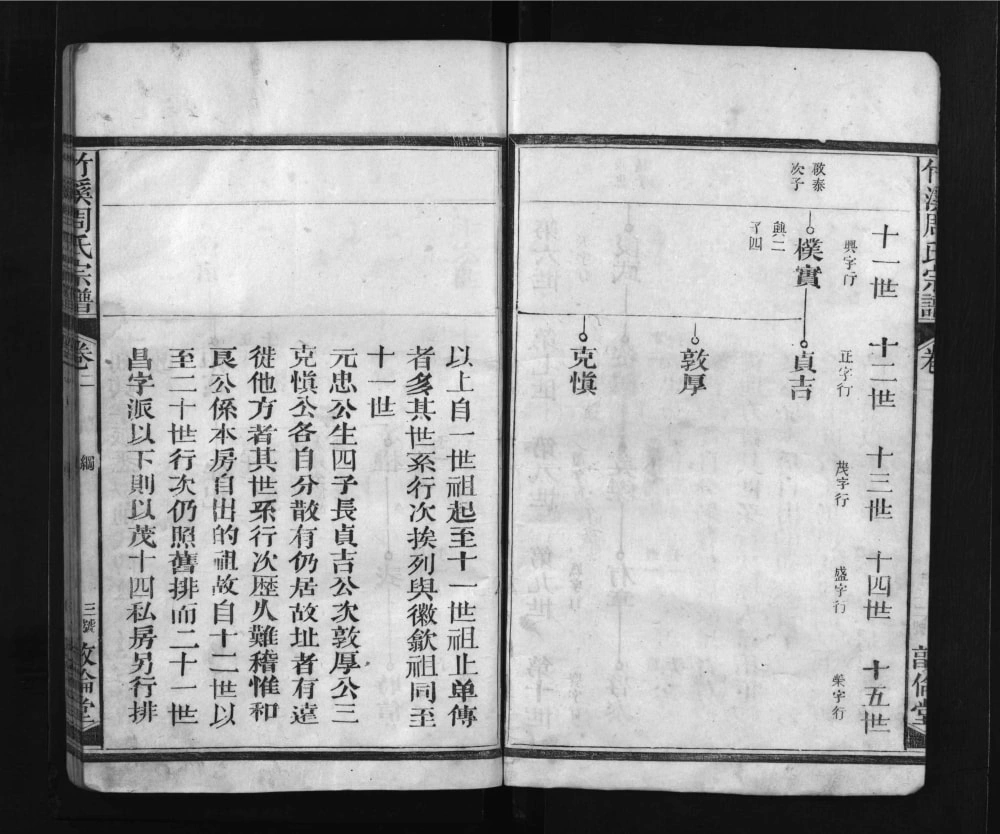 十一世 十二世 十三世 十四世 十五世
興字行 正字行 茂字行 盛字行 榮字行
啟泰
次子
樸實
興二
子四
貞吉
敦厚
克愼
以上自一世祖起至十一世祖止单傳
者多其世系行次挨列與徽歙祖同至
十一世
元忠公生四子長貞吉公次敦厚公三
克愼公各自分散有仍居故址者有遠
徙他方者其世系行次歷久難稽惟和
良公係本房自出的祖故自十二世以
至二十世行次仍照舊排而二十一世
昌字派以下則以茂十四私房另行排
竹溪周氏宗譜
卷二
綱
三號
敦倫堂